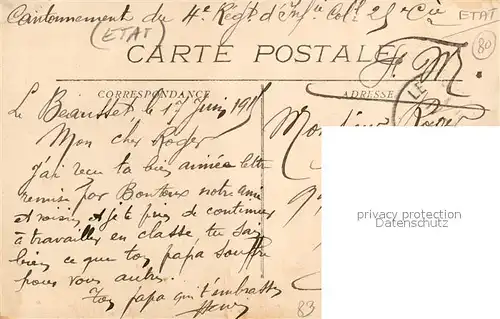 Cantonnement du 4e Régt d'Infie Colle 25e Cie
(ETAT)
ETAT
80
CARTE POSTALE
F. M.
CORRESPONDANCE
ADRESSE
Le Beausset, le 17 Juin 191
Mon cher Roger
J'ai reçu ta bien aimée lettre
remise par Bontoux notre ami
et voisin et je te prie de continuer
à travailler en classe tu sais
bien ce que ton papa souffre
pour vous autres.
Ton papa qui t'embrasse
Henri
Monsieur Roger
privacy protection
Datenschutz
83